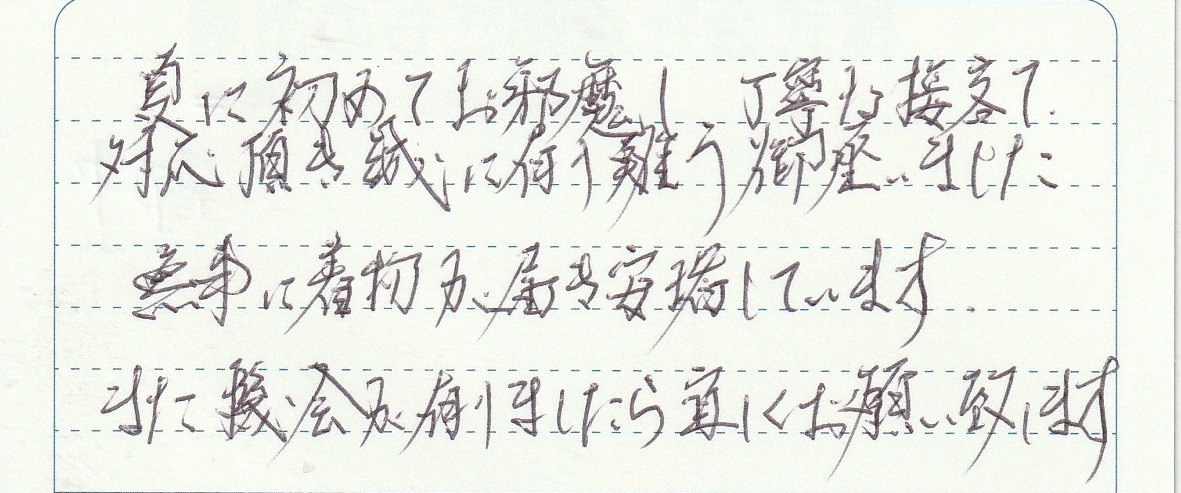 真に初めてお邪魔し 丁寧な接客で
対応頂き誠に有り難う御座いました
無事に着物が届き安堵しています.
また機会が有りましたら宜しくお願い致します